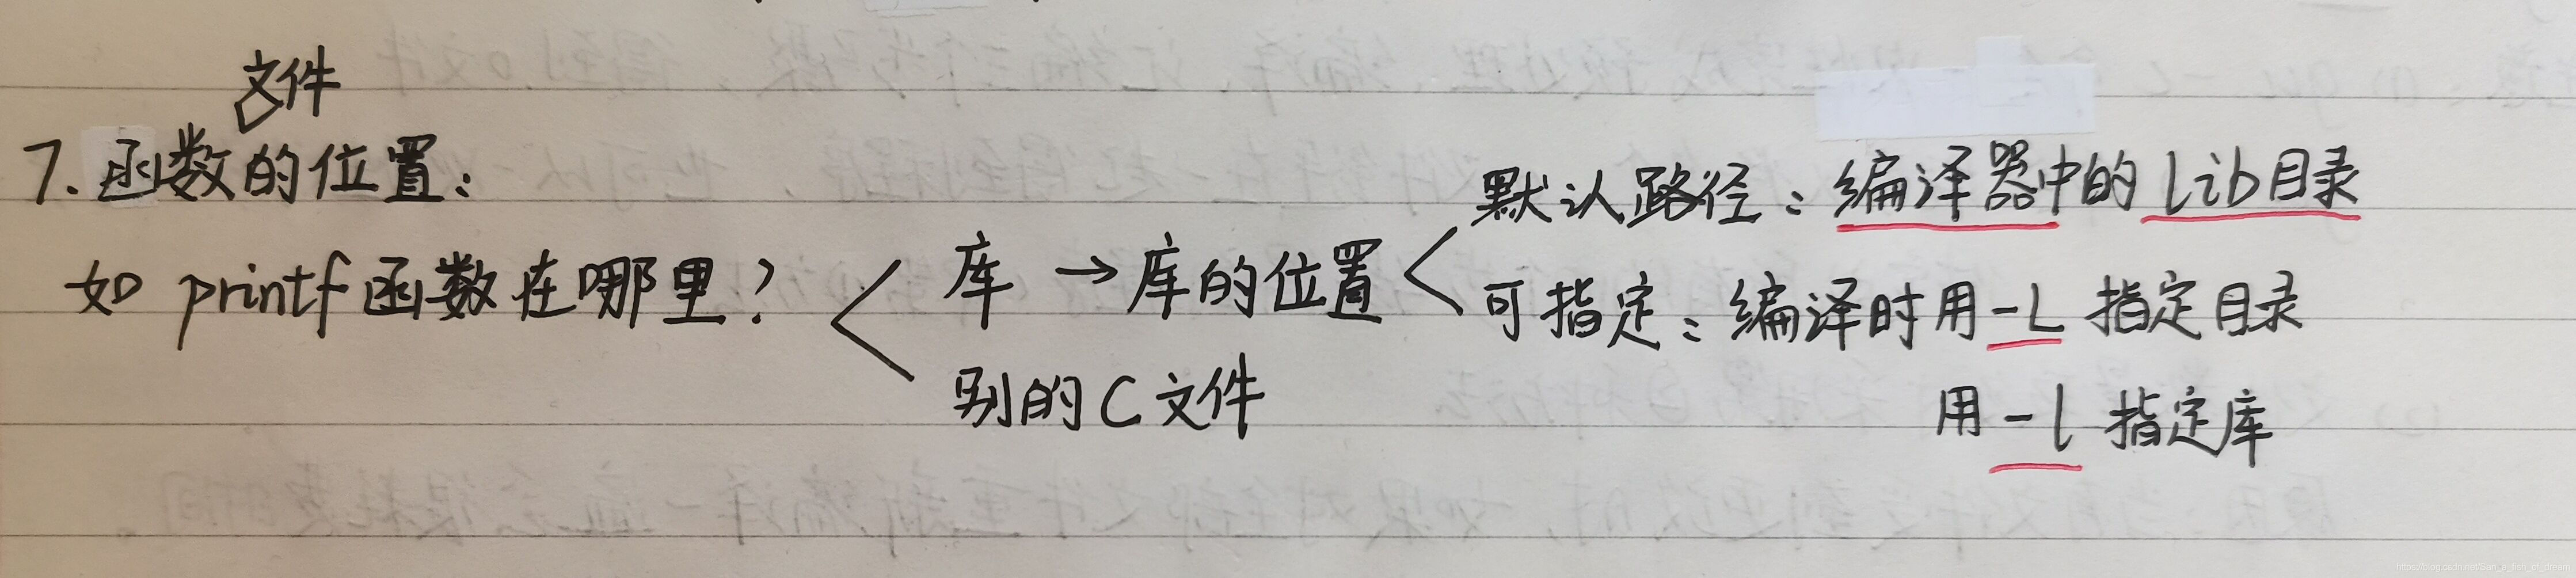 文件
7. 函数的位置：
如 printf 函数在哪里？
库 → 库的位置
默认路径：编译器中的 lib目录
可指定：编译时用 -L 指定目录
用 -l 指定库
别的 C 文件